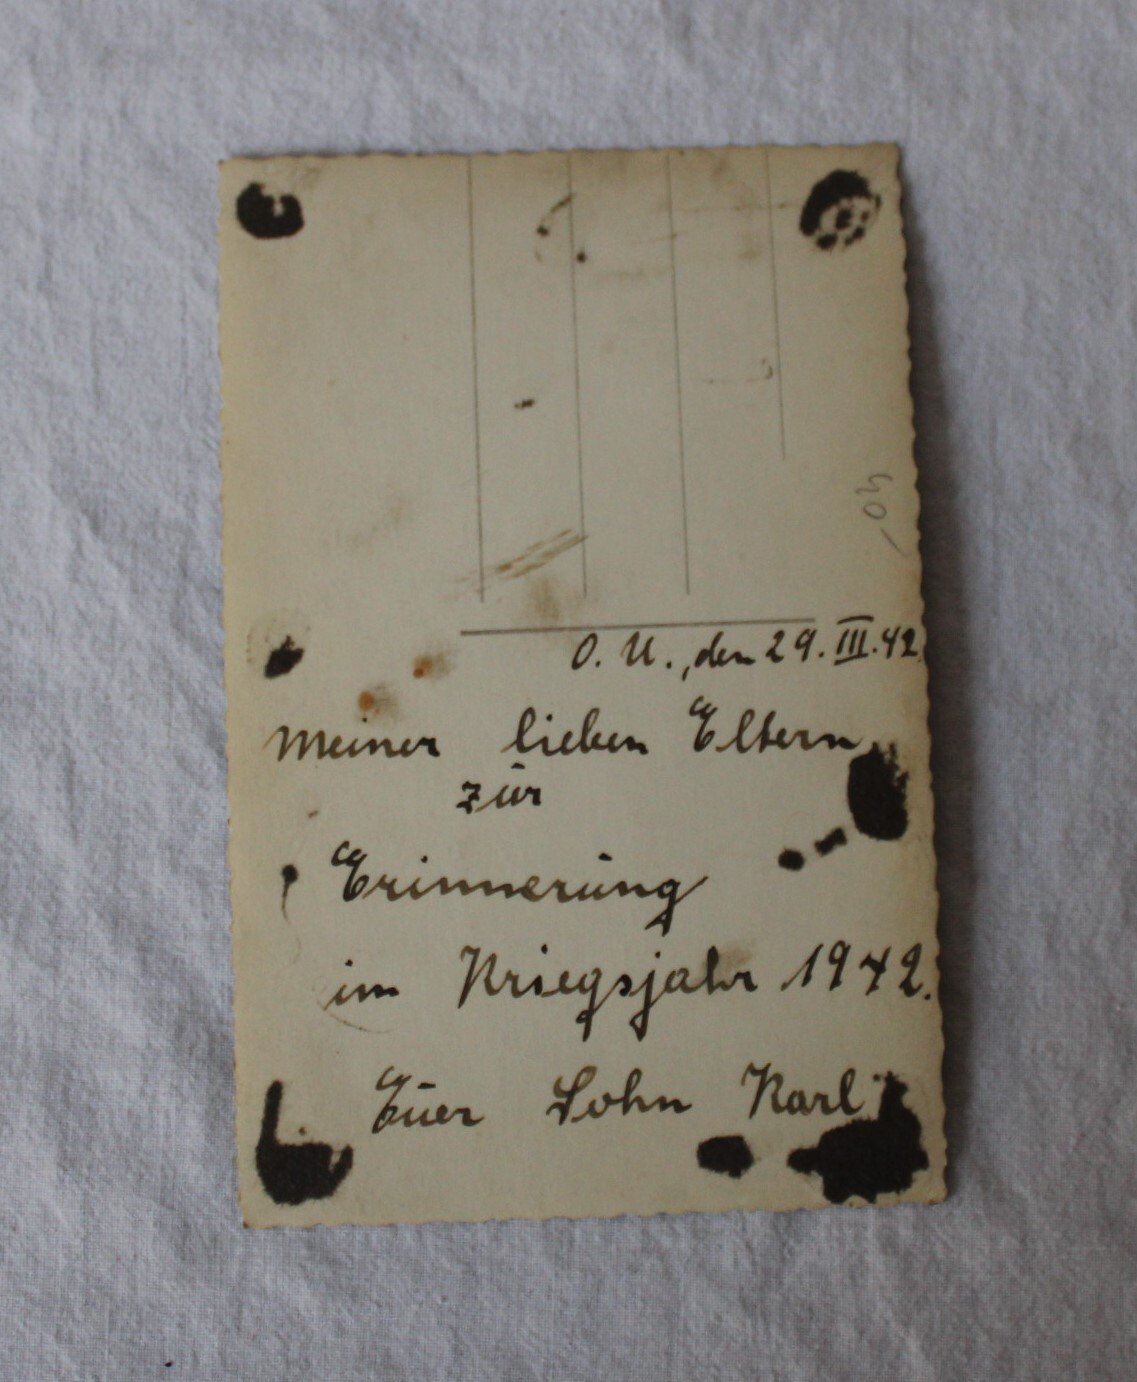 O. U., den 29. III. 42.
Meiner lieben Eltern
zur
Erinnerung
im Kriegsjahr 1942.
Euer Sohn Karl